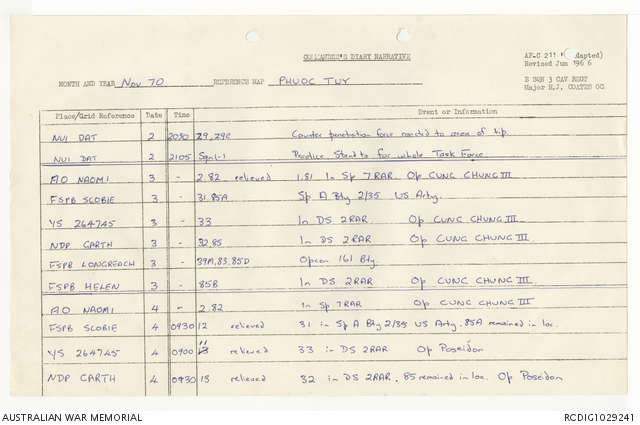 COMMANDER'S DIARY NARRATIVE
AF-C 211 (Adapted)
Revised Jun 1966
MONTH AND YEAR Nov 70 REFERENCE MAP PHUOC TUY
B SQN 3 CAV REGT
Major H.J. COATES OC
Place/Grid Reference Date Time Event or Information
NUI DAT 2 2050 29, 29C Counter penetration force reacted to area of tip.
NUI DAT 2 2105 Sqn(-) Practice Stand to for whole Task Force
AO NAOMI 3 - 2.82 relieved 1.81 In Sp 7 RAR. Op CUNG CHUNG III
FSPB SCOBIE 3 - 31.85A Sp A Bty 2/35 US Arty.
YS 264745 3 - 33 In DS 2RAR Op CUNG CHUNG III
NDP GARTH 3 - 32,85 In DS 2RAR Op CUNG CHUNG III
FSPB LONGREACH 3 - 39M,83,85D Opcon 161 Bty.
FSPB HELEN 3 - 85B In DS 2RAR Op CUNG CHUNG III
AO NAOMI 4 - 2.82 In Sp 7RAR Op CUNG CHUNG III
FSPB SCOBIE 4 0930 12 relieved 31 in Sp A Bty 2/35 US Arty. 85A remained in loc.
YS 264745 4 0900 11 relieved 33 in DS 2RAR Op Poseidon
NDP GARTH 4 0930 13 relieved 32 in DS 2RAR. 85 remained in loc. Op Poseidon
AUSTRALIAN WAR MEMORIAL RCDIG1029241